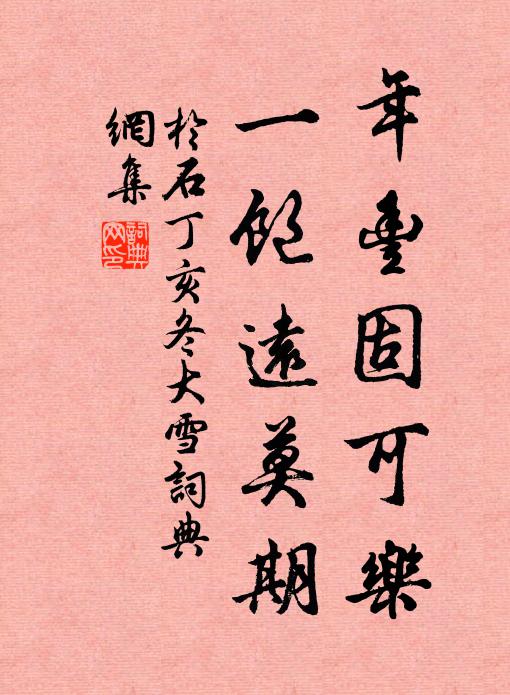 年豐固可樂
一飽遠莫期
於石丁亥冬大雪詞典
網集
詞典
网印